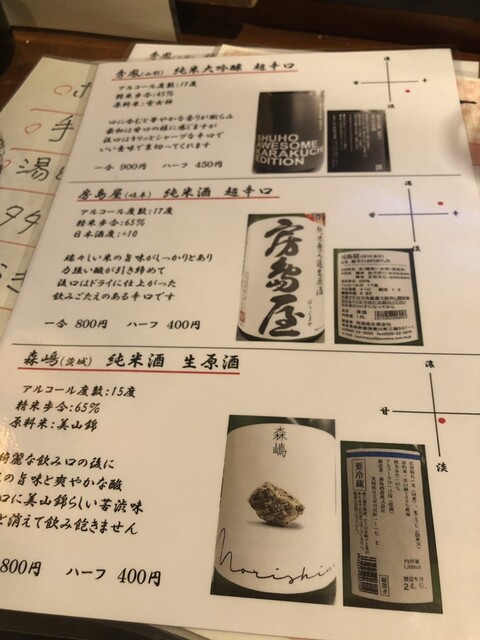 秀鳳(山形) 純米大吟醸 超辛口
アルコール度数:17度
精米歩合:45%
原料米:雪女神
口に含むと華やかな香りが膨らみ
最初は甘口の様に感じますが
後口はキリッとシャープな辛口で
いい意味で裏切ってくれます
一合 900円 ハーフ 450円
SHUHO
AWESOME
KARAKUCH
EDITION
房島屋(岐阜) 純米酒 超辛口
アルコール度数:17度
精米歩合:65%
日本酒度:+10
瑞々しい米の旨味がしっかりとあり
力強い酸が引き締めて
後口はドライに仕上がった
飲みごたえのある辛口です
一合 800円 ハーフ 400円
房島屋
甘
淡
森嶋(茨城) 純米酒 生原酒
アルコール度数:15度
精米歩合:65%
原料米:美山錦
綺麗な飲み口の後に
の旨味と爽やかな酸
口に美山錦らしい苦渋味
と消えて飲み飽きません
800円 ハーフ 400円
森嶋
Morishim
要冷蔵
濃
甘
淡
手
湯
タタ